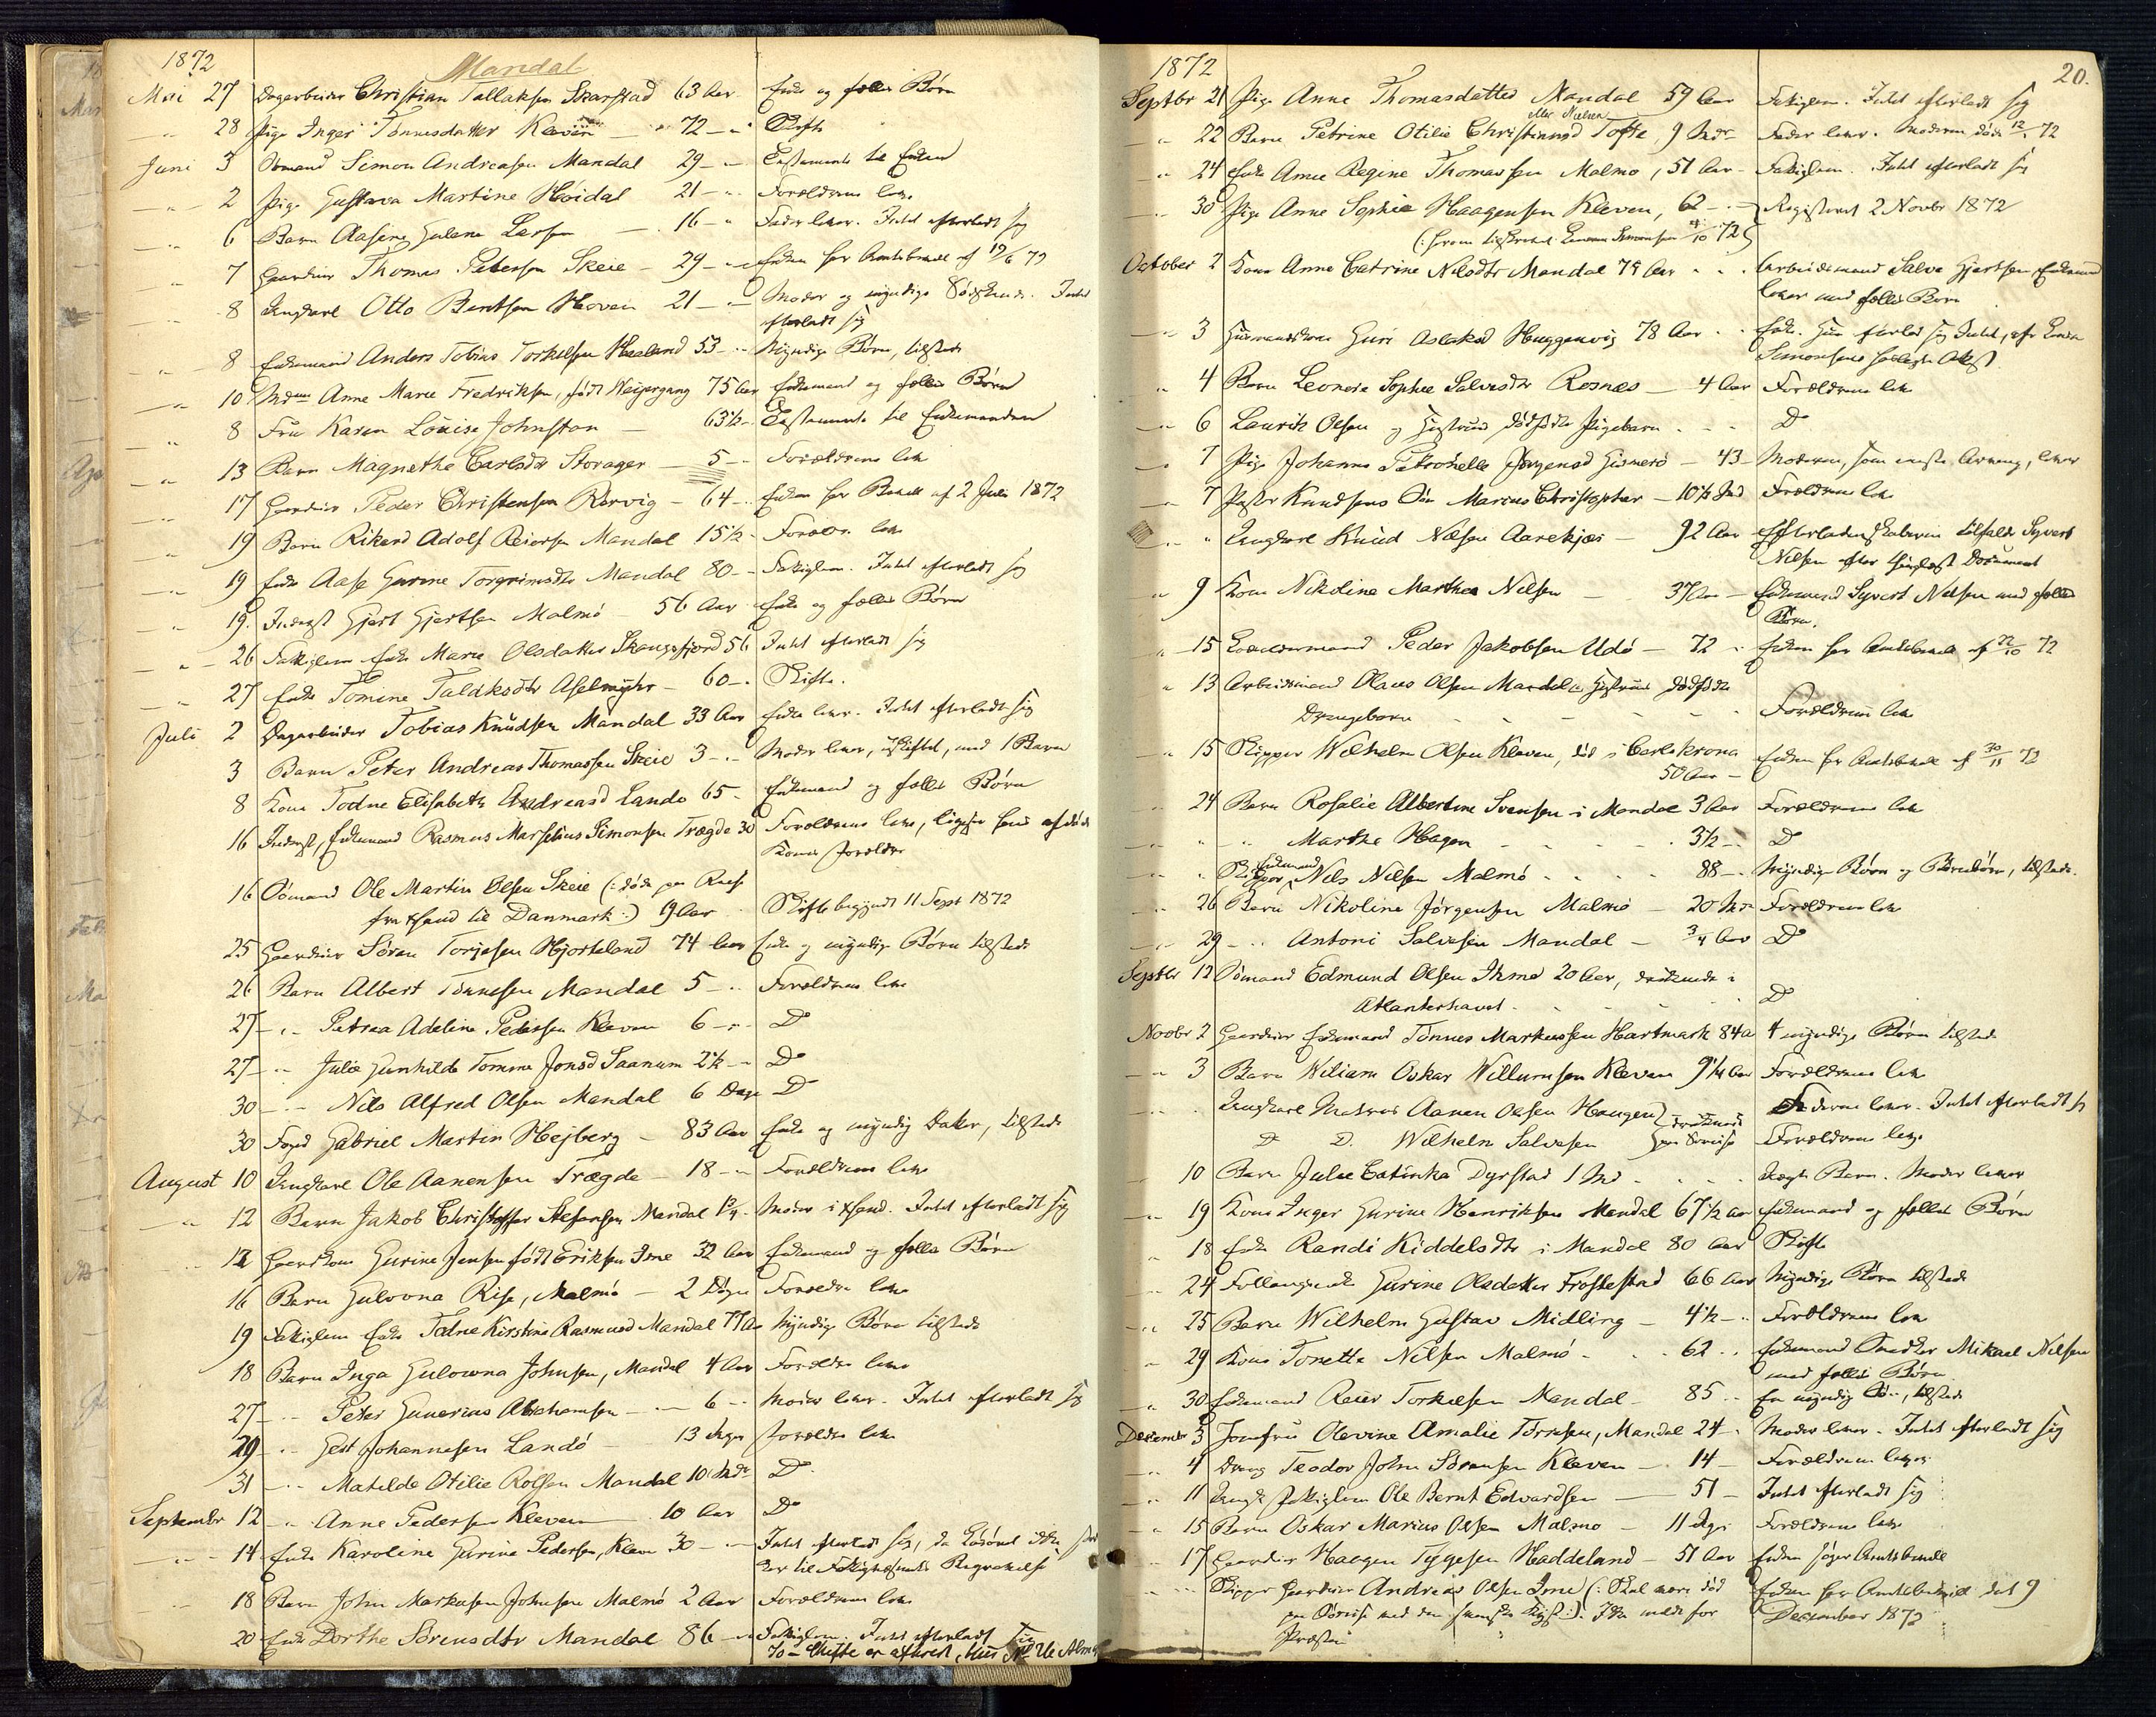 1872
Mandal
Mai 27 Dagarbeider Christian Tallaksen Skarstad 63 Aar Enke og fælles Børn
" 28 Pige Inger Tønnesdatter Kleven 72 - " Skifte
Juni 3 Sømand Simon Andreasen Mandal 29 - " Testamente til Enken
" 2 Pige Gustava Martine Høidal 21 - " Forældrene leve
" 6 Barn Aasene Gulene Larsen 16 - " Fader lever. Intet efterladt sig
" 7 Gaardbr Thomas Petersen Skeie - 29 - " Enken har Amtsbevill. af 19/6 72
" 8 Ungkarl Otto Berntsen Hoven 21 - Moder og myndige Sødskende. Intet
efterladt sig
" 8 Enkemand Anders Tobias Torkelsen Haaland 53 - " Myndige Børn, tilstede
" 10 Mdm Anne Marie Fredriksen, født Weiergang 75 Aar Enkemand og fælles Børn
" 8 Fru Karen Louise Johnston - 63½ - Testamente til Enkemanden
" 13 Barn Magnethe Carlsdtr Storager - 5 - " Forældrene leve
" 17 Gaardbr Peder Christensen Rørvig - 64 - " Enken har Bevill. af 2 Juli 1872
" 19 Barn Rikard Adolf Reiersen Mandal 15½ - Forældr. leve
" 19 Enke Aase Gurine Torgrimsdtr Mandal 80 - " Fattiglem. Intet efterladt sig
" 19. Inderst Gjert Gjertsen Malmø - 56 Aar Enke og fælles Børn
" 26 Fattiglem Enke Marie Olsdatter Skougsfjord 56 Intet efterladt sig
" 27 Enke Tomine Taldksdtr 60 - " Skifte.
Juli 2 Dagarbeider Tobias Knudsen Mandal 33 Aar Enke lever. Intet efterladt sig
3 Barn Peter Andreas Thomassen Skeie 3 - " Moder lever, uskiftet, med 1 Barn
8 Kone Todne Elisabeth Andreasd Lande 65 - Enkemand og fælles Børn
16 Inderst, Enkemand Rasmus Marselius Simonsen Trægde 30 Forældrene leve, ligesaa hans afdøde
Kones Forældre
16 Sømand Ole Martin Olsen Skeie (: døde paa Reise
fra Xsand til Danmark :) 19 Aar Skifte begyndt 11 Sept 1872
25 Gaardbr Søren Torjesen Hjorteland 74 Aar Enke og myndige Børn tilstede
26 Barn Albert Tønnesen Mandal 5 - " Forældrene leve
27 - " - Petrea Adeline Pedersen Kleven 6 - " - Do
27 - " - Julie Gunhilde Tomine Jonsd Saanum 2½ - " Do
30 - " - Nils Alfred Olsen Mandal 6 Dage Do
30 Foged Gabriel Martin Hejberg - 83 Aar Enke og myndig Datter, tilstede
August 10 Ungkarl Ole Aanensen Trægde - 18 - " Forældrene leve
" 12 Barn Jakob Christoffer Stefansen Mandal 1¾ - Moder i Xsand. Intet efterladt sig
" 12 Gaardkone Gurine Jensen født Eriksen Ime 32 Aar Enkemand og fælles Børn
16 Barn Gulovna Rise, Malmø - 2 Døgn Forældre leve
19 Fattiglem Enke Todne Kirstine Rasmusd Mandal 77 Aar Myndige Børn tilstede
18 Barn Inga Gulowna Johnsen, Mandal 4 Aar Forældre leve
27 - " - Peter Gunerius Abrahamsen - " 6 - " Moder lever. Intet efterladt sig
29 - " Gert Johannesen Landø 13 Uger Forældre leve
31 - " - Matilde Otilie Rolfsen Mandal 10 Mdr Do
September 12 - " Anne Pedersen Kleven 10 Aar Do
" 14 Enke Karoline Gurine Pedersen, Kleven 30 - " Intet efterladt sig, da Løsøret ikke
til Fattigvæsenets
18 Barn John Markusen Johnsen Malmø 2 Aar Forældrene leve
20 Enke Dorthe Sørensdtr Mandal 86 - " Fattiglem. Intet efterladt sig
1872
20.
Septbr 21 Pige Anne Thomasdatter Mandal 59 Aar Fattiglem. Intet efterladt sig
eller Nielsen
- " 22 Barn Petrine Otilie Christiansd Tofte, 9 Mdr Fader lever. Moderen døde 12/1 72
" 24 Enke Anne Regine Thomassen Malmø, 51 Aar - Fattiglem. Intet efterladt sig
" 30 Pige Anne Sophie Haagensen Kleven, 62 - " Registreret 2 Novbr 1872
October 2 Kone Anne Catrine Nilsdtr Mandal 74 Aar Arbeidsmand Salve Gjertsen Enkemand
lever med fælles Børn
" 3 Huusmandskone Guri Aslaksd Haaggenvig 78 Aar Enke. Hun efterlod sig Intet, efter
Simonsens Attest
" 4 Barn Leonora Sophie Salvesdtr Rosnes - 4 Aar Forældrene leve
" 6 Laurits Olsen og Hustrus dødfødte Pigebarn Do
" 7 Pige Johanne Petronelle Jørgensd Gismerø - 43 - Moderen, som eneste Arving, lever
" 7 Pastor Knudsens Søn Marius Christopher - 10½ Md Forældrene leve
" " Ungkarl Knud Nilsen Aarekjær - 92 Aar Efterladenskaberne tilfaldt Syvert
Nilsen efter thinglæst Document
" 9 Kone Nikoline Marthea Nilsen 37 Aar - Enkemand Syvert Nilsen med fælles
Børn.
" 15 Lodsoldermand Peder Jakobsen Udø - 72 " Enken har Amtsbevill. af 22/10 72
" 13 Arbeidsmand Olaus Olsen Mandal & Hustrues dødfødte
Drengebarn Forældrene leve
" 15 Skipper Wilhelm Olsen Kleven, død i Carlskrona Enken har Amtsbevill. af 30/11 72
50 Aar -
" 24 Barn Rosalie Albertine Svensen i Mandal 3 Aar Forældrene leve
" " " Marthe Hagen 3½ - " Do
Enkemand
" Skipper Nils Nilsen Malmø 88 - " Myndige Børn og Børnebørn, tilstede.
" 26 Barn Nikoline Jørgensen Malmø - 20 Mdr Forældrene leve
" 29 - " Antoni Salvesen Mandal - ¾ Aar Do
Septbr 12 Sømand Edmund Olsen Ihme 20 Aar, druknede i
Atlanterhavet Do
Novbr 2 Gaardbr Enkemand Tønnes Markussen Hartmark 84 A 4 myndige Børn tilstede
" 3 Barn Wiliam Oskar Willumsen Kleven 9¼ Aar Forældrene leve
" Ungkarl Matros Aanen Olsen Haugen lever. Intet efterladt sig
Do Do Wilhelm Salvesen Forældrene leve
10 Barn Julie Catinka Dyrstad 1 Md Uægte Barn. Moder lever
" 19 Kone Inger Gurine Henriksen Mandal 67½ Aar Enkemand og fælles Børn
" 18 Enke Randi Kiddelsdtr i Mandal 80 Aar Skifte
" 24 Gurine Olsdatter Frøstestad 66 Aar Myndige Børn tilstede
" 25 Barn Wilhelm Gustav Midling - 4½ - " Forældrene leve
" 29 Kone Tonette Nilsen Malmø 62 " Enkemand Snedker Mikael Nilsen
med fælles Børn
" 30 Enkemand Reier Torkelsen Mandal - 85 " En myndig Søn, tilstede
December 3 Jomfru Olevine Amalie Tørresen, Mandal 24 - Moder lever. Intet efterladt sig
" 4 Dreng Teodor John Sørensen Kleven - 14 - Forældrene lever
" 11 Ungk. Fattiglem Ole Bernt Edvardsen - 51 - Intet efterladt sig
" 15 Barn Oskar Marius Olsen Malmø - 11 Uger Forældrene leve
" 17 Gaardbr Haagen Tygesen Haddeland - 51 Aar Enken søger Amtsbevill.
" Skipper Gaardbr Andreas Olsen Ime (: Skal være død Enken har Amtsbevill. dat 9
paa Søreise ved den svenske Kyst :). Ikke meldt for December 1872
Præsten